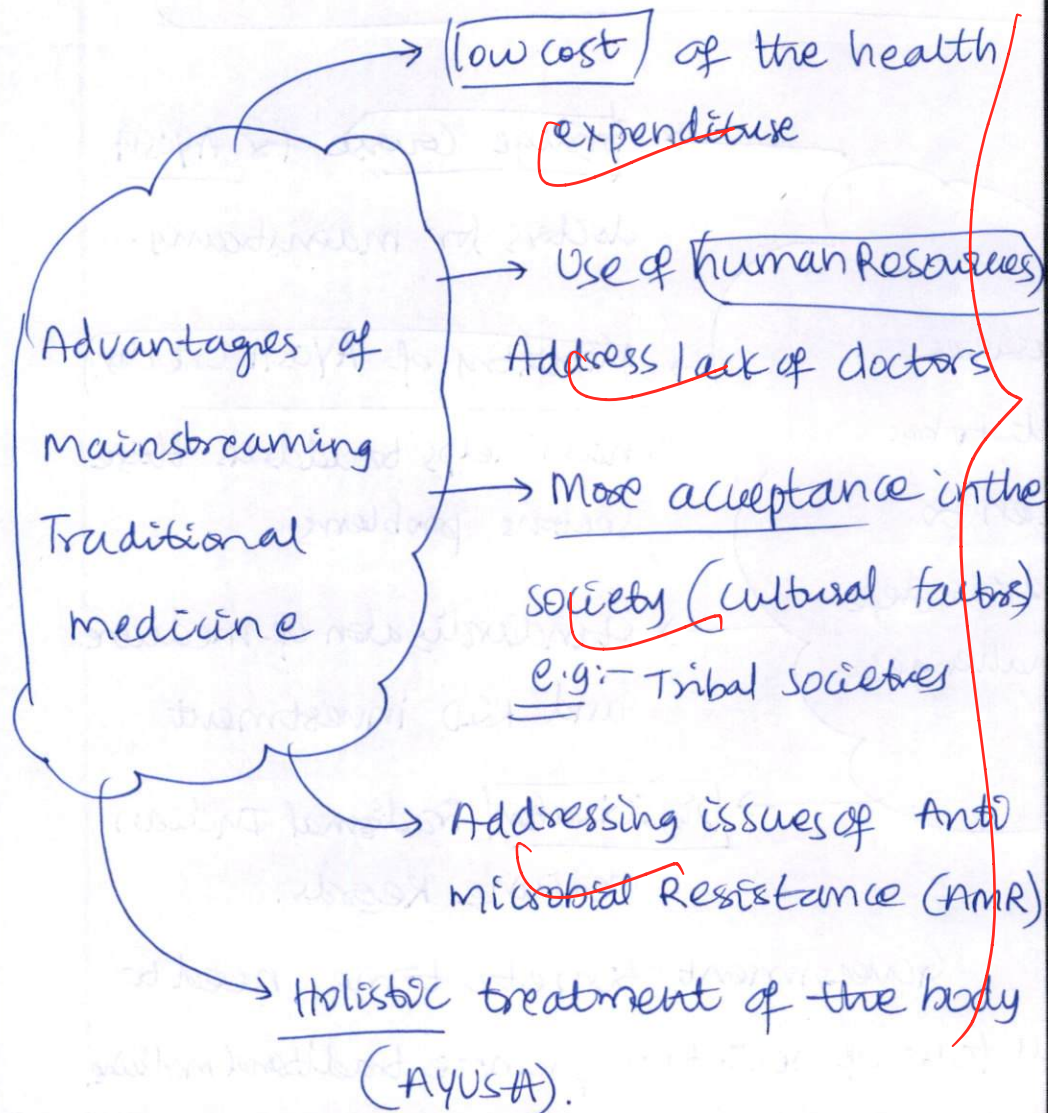 Advantages of
Mainstreaming
Traditional
medicine
low cost of the health
expenditure
Use of human Resources
Address lack of doctors
More acceptance in the
society (cultural factors)
e.g:- Tribal societies
Addressing issues of Anti
microbial Resistance (AMR)
Holistic treatment of the body
(AYUSH).